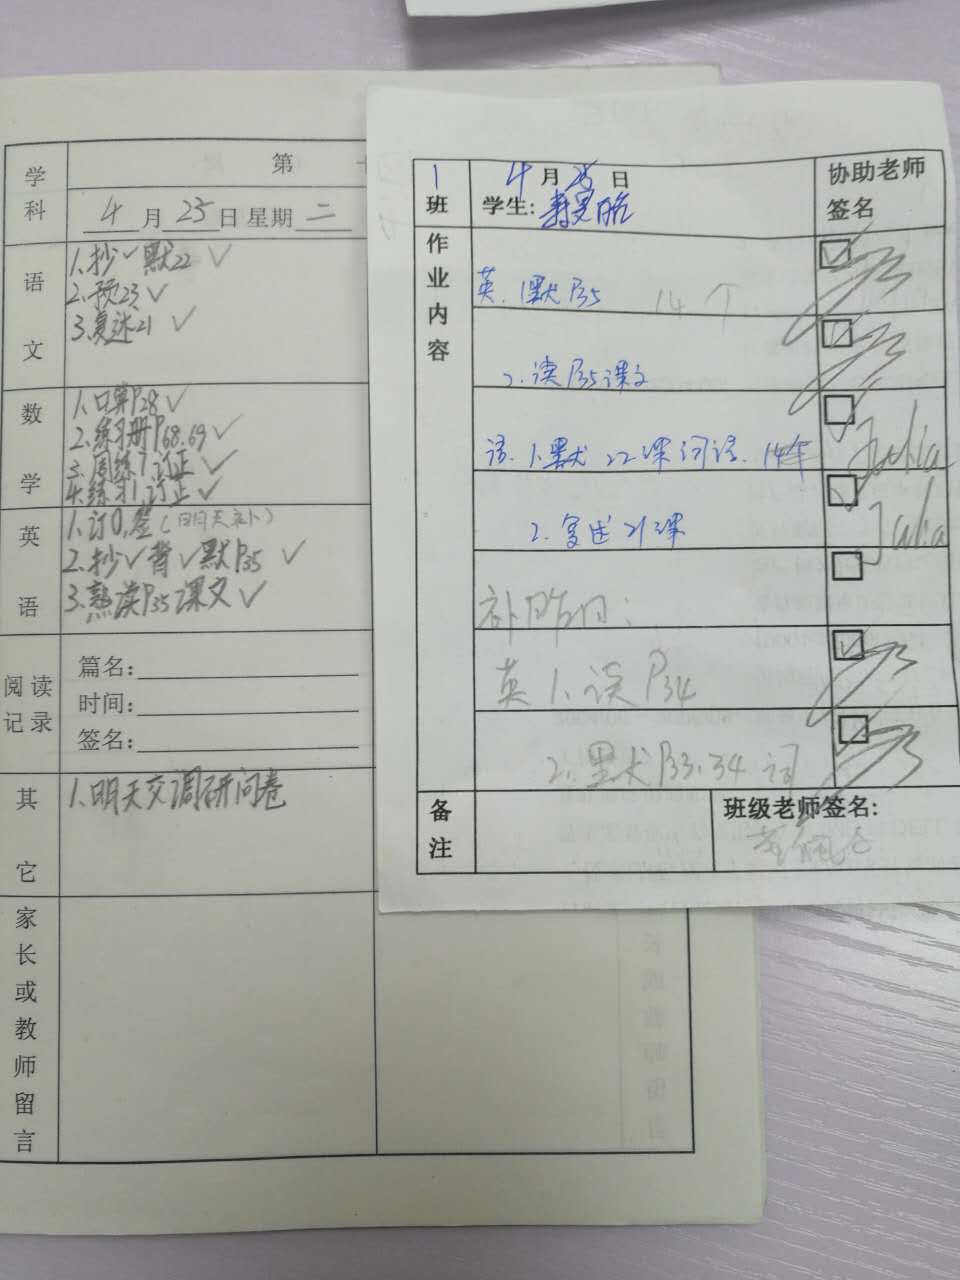 学科
第
4月25日 星期二
语文
1.抄✓默22 ✓
2.预23 ✓
3.复述21 ✓
数学
1.口算P28 ✓
2.练习册P68.69 ✓
3.周练7订正 ✓
4.练习1,订正 ✓
英语
1.订0,签(明天补)
2.抄✓背✓默P35 ✓
3.熟读P35课文 ✓
阅读记录
篇名:
时间:
签名:
其它
1.明天交调研问卷
家长或教师留言
1班
4月25日
学生:
协助老师签名
作业内容
英.1默P35 14个
2.读P35课文
语.1.默22课词语.14个
Julia
2.复述21课
Julia
补昨日:
英1.读P34
2.默P33.34词
备注
班级老师签名: